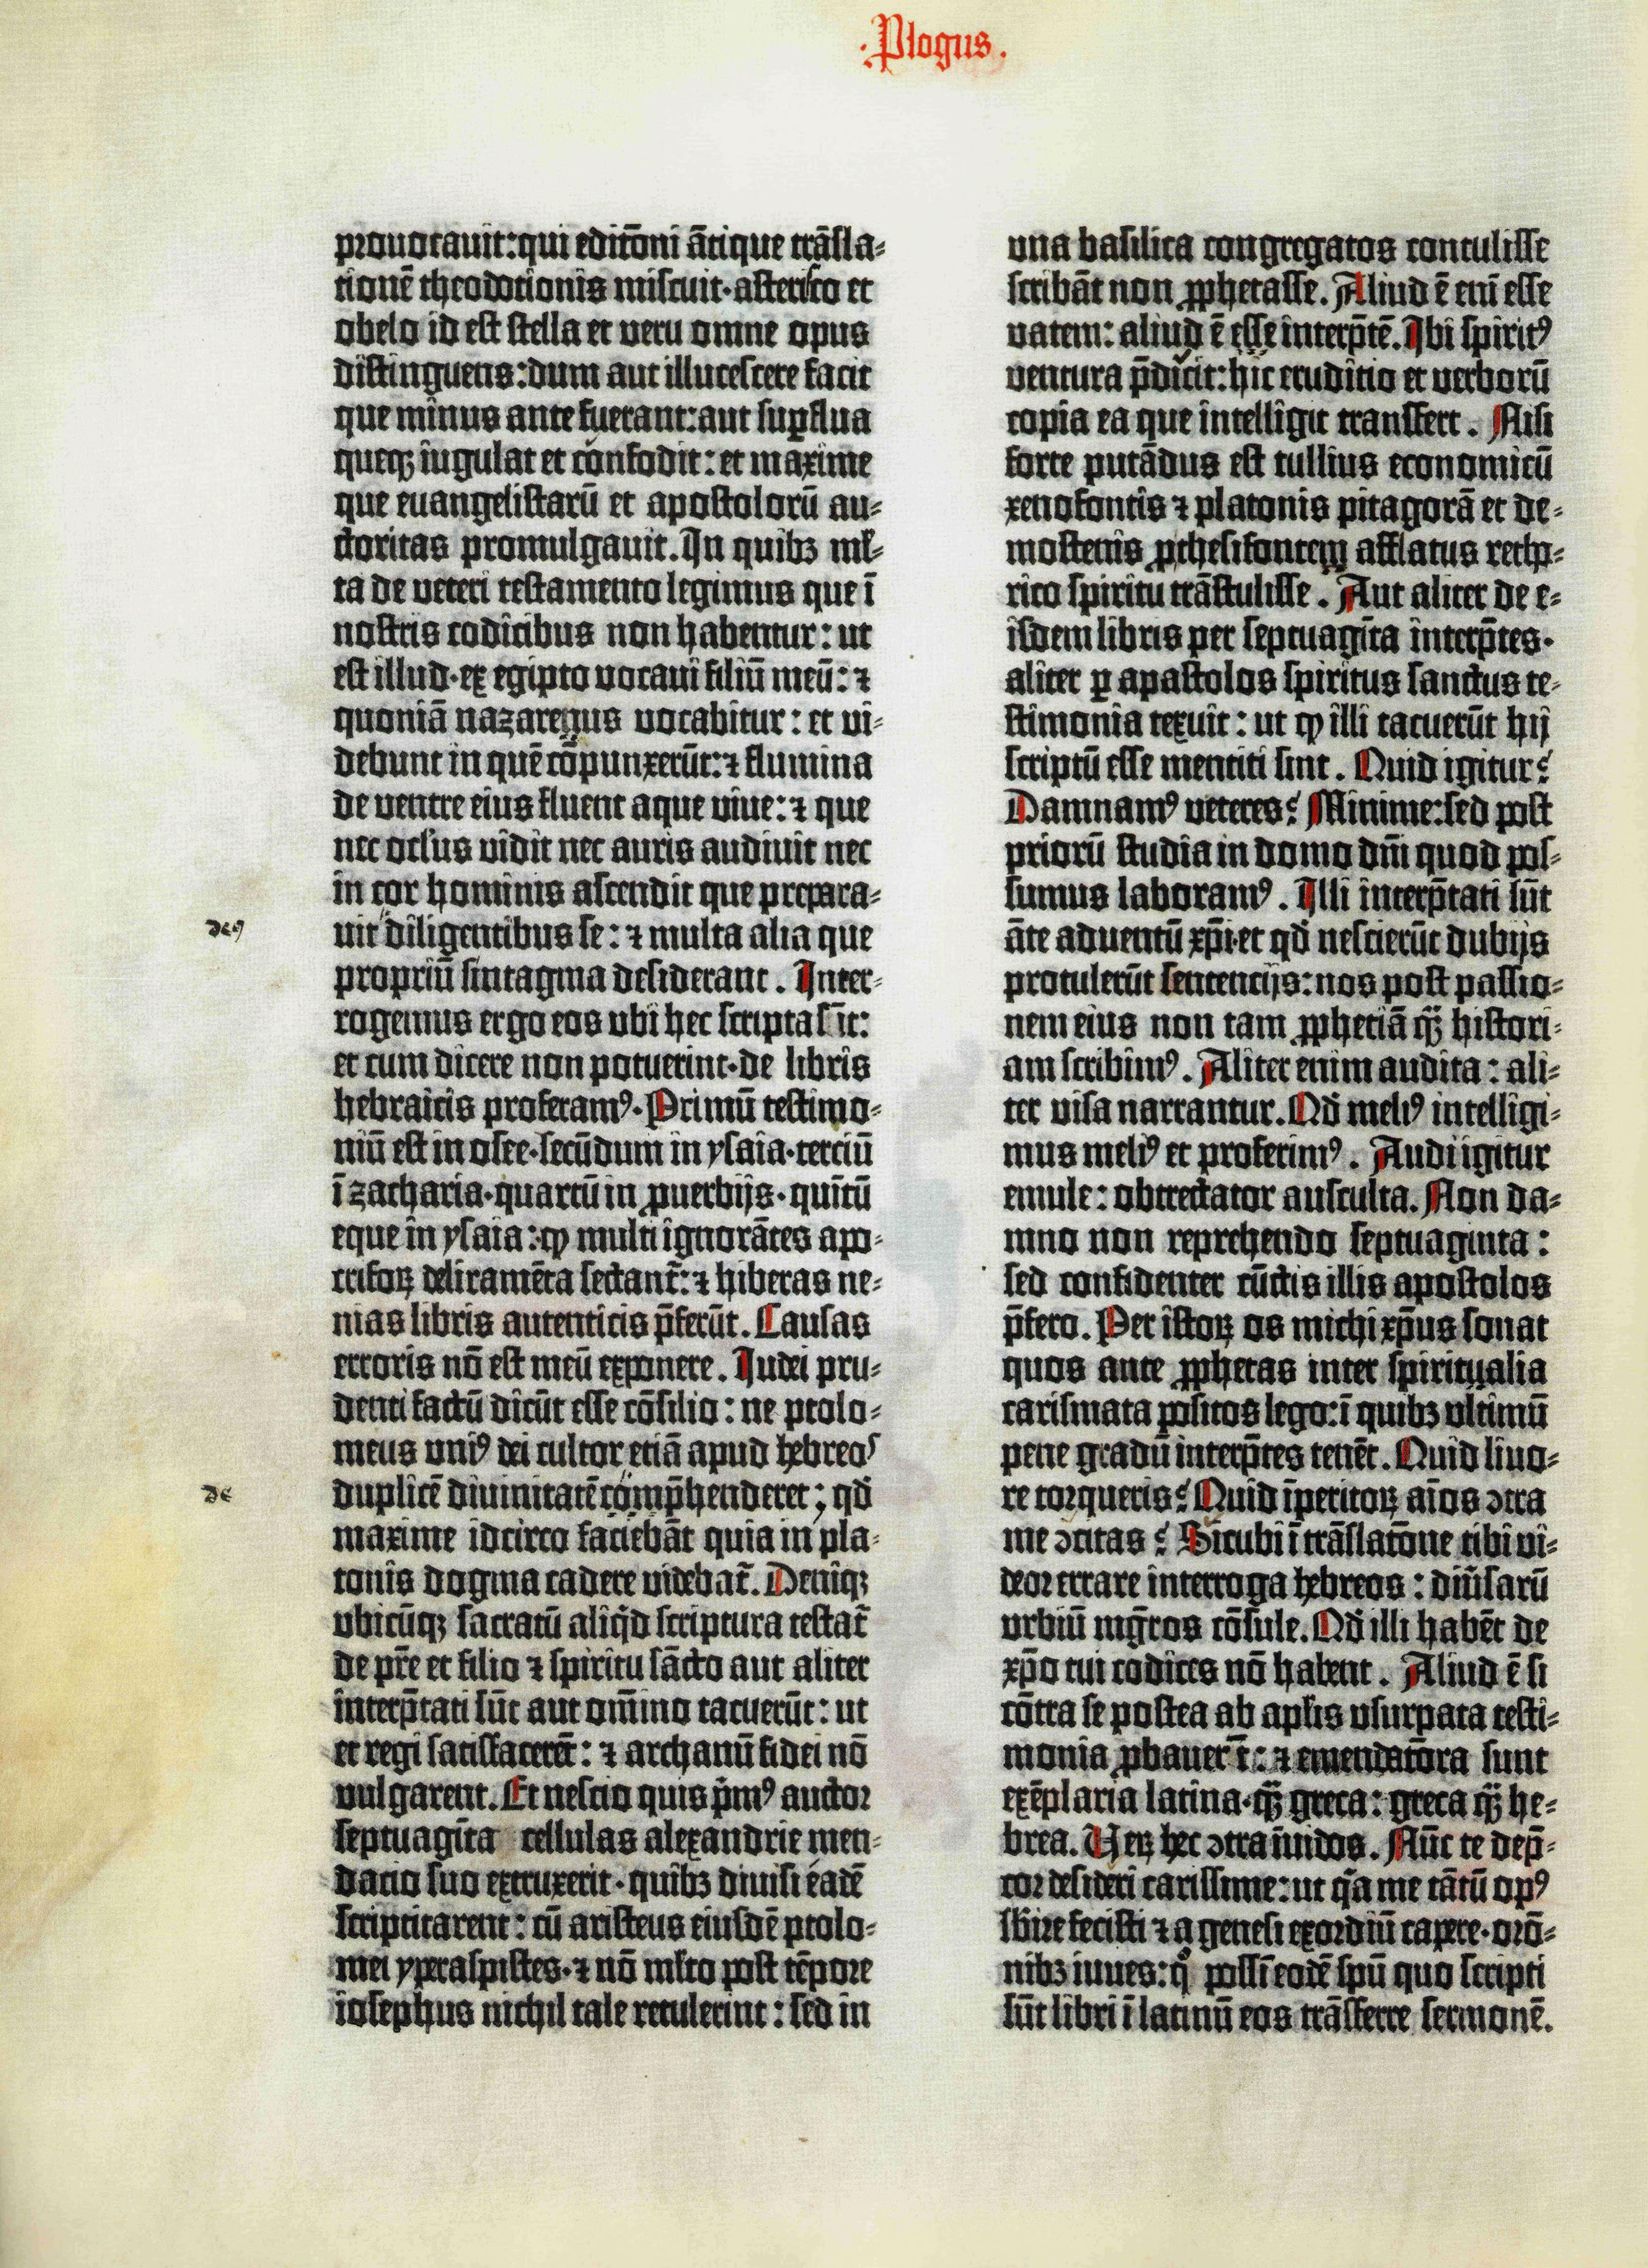 ·Plogus.
prouocauit:qui editōni ātique trāsla-
tionē theodotionis miscuit·asterisco et
obelo id est stella et veru omne opus
distinguens:dum aut illucescere facit
que minus ante fuerant:aut suꝑflua
queqꝫ iugulat et confodit: et maxime
que euangelistarū et apostolorū au-
ctoritas promulgauit. In quibꝫ ml̄-
ta de veteri testamento legimus que ī
nostris codicibus non habentur: ut
est illud·ex egipto uocaui filiū meū: ⁊
quoniā nazarenus vocabitur: et vi-
debunt in quē cōpunxerūt: ⁊ flumina
de ventre eius fluent aque viue: ⁊ que
nec ocl̓us vidit nec auris audiuit nec
in cor hominis ascendit que prepara-
deꝰ
uit diligentibus se: ⁊ multa alia que
propriū sintagma desiderant. Inter-
rogemus ergo eos vbi hec scripta s̄it:
et cum dicere non potuerint·de libris
hebraicis proferamꝰ. Primū testimo-
niū est in osee·secūdum in ysaia·terciū
ī zacharia·quartū in ꝓuerbijs·quītū
eque in ysaia: ꝙ multi ignorātes apo-
crifoꝝ deliramēta sectant᷑: ⁊ hiberas ne-
nias libris autenticis p̄ferūt. Causas
erroris nō est meū exponere. Iudei pru-
denti factū dicūt esse cōsilio: ne ptolo-
meus vniꝰ dei cultor etiā apud hebreos
de
duplicē diuinitatē comp̄henderet; qd̄
maxime idcirco faciebāt quia in pla-
tonis dogma cadere videbat᷑. Deniqꝫ
vbicūqꝫ sacratū aliq̇d scriptura testat᷑
de pr̄e et filio ⁊ spiritu sācto aut aliter
interp̄tati sūt aut om̄ino tacuerūt: ut
et regi satisfacerēt: ⁊ archanū fidei nō
vulgarent. Et nescio quis ṗmꝰ auctor
septuagīta cellulas alexandrie men-
dacio suo extruxerit·quibꝫ diuisi eadē
scriptitarent: cū aristeus eiusdē ptolo-
mei yperaspistes·⁊ nō ml̄to post tēpore
iosephus nichil tale retulerint: sed in
una basilica congregatos contulisse
scribāt non ꝓphetasse. Aliud ē eni̅ esse
vatem: aliud ē esse interp̄tē. Ibi spiritꝰ
ventura p̄dicit: hic eruditio et verborū
copia ea que intelligit transfert. Nisi
forte putādus est tullius economicū
xenofontis ⁊ platonis pitagorā et de-
mostenis ꝓthesifontem afflatus retho-
rico spiritu trāstulisse. Aut aliter de e-
isdem libris per septuagīta interp̄tes·
aliter ꝑ apastolos spiritus sanctus te-
stimonia texuit: ut ꝙ illi tacuerūt hij
scriptū esse mentiti sint. Quid igitur?
Damnamꝰ veteres? Minime: sed post
priorū studia in domo dn̄i quod pos-
sumus laboramꝰ. Illi interp̄tati sūt
āte aduentū xp̄i·et qd̄ nescierūt dubijs
protulerūt sentencijs: nos post passio-
nem eius non tam ꝓphetiā qꝫ̄ histori-
am scribimꝰ. Aliter enim audita: ali-
ter visa narrantur. Qd̄ meliꝰ intelligi-
mus meliꝰ et proferimꝰ. Audi igitur
emule: obtrectator ausculta. Non da-
mno non reprehendo septuaginta:
sed confidenter cūctis illis apostolos
p̄fero. Per istoꝝ os michi xp̄us sonat
quos ante ꝓphetas inter spiritualia
carismata positos lego: ī quibꝫ vltimū
pene gradū interp̄tes tenēt. Quid liuo-
re torqueris? Quid īperitoꝝ aīos ɔtra
me ɔcitas? Sicubi ī trāslatōne tibi vi-
deor errare interroga hebreos: diu̓sarū
vrbiū mg̃ros cōsule. Qd̄ illi habēt de
xp̄o tui codices nō habent. Aliud ē si
cōtra se postea ab apl̓is vsurpata testi-
monia ꝓbauer̄t: ⁊ emendatōra sunt
exēplaria latina·qꝫ̄ greca: greca qꝫ̄ he-
brea. Ueꝝ hec ɔtra īuidos. Nūc te dep̄-
cor desideri carissime: ut qͣ me tātū opꝰ
sb̓ire fecisti ⁊ a genesi exordiū capere·orō-
nibꝫ iuues: qͦ possī eodē spū quo scripti
sūt libri ī latinū eos trāsferre sermonē.